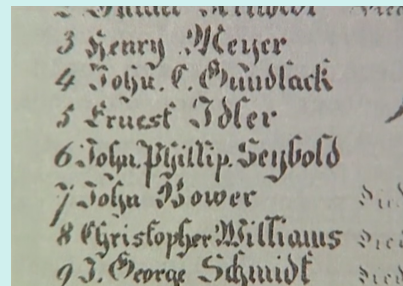 3 Henry Meyer
4 John. C. Gundlack
5 Ernest Idler
6 John. Phillip. Seybold
7 John Bower Died
8 Christopher Williams Died
9 J. George Schmidt Died